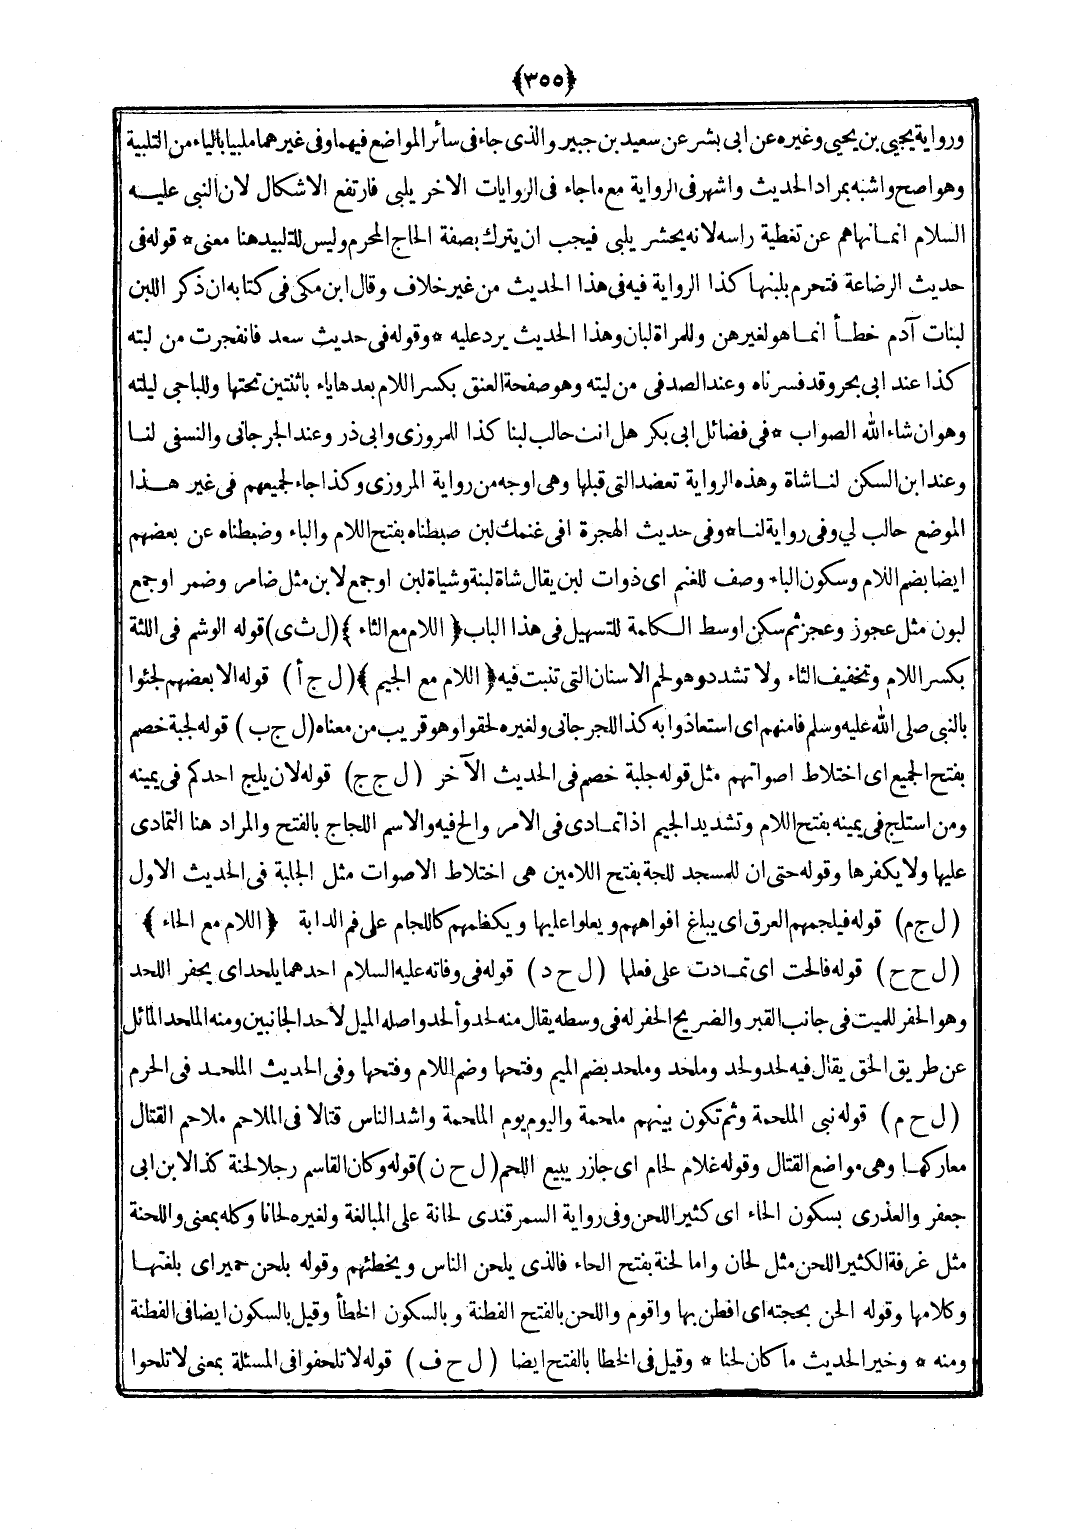 ﴿٣٥٥﴾
ورواية يحيى بن يحيى وغيره عن ابى بشر عن سعيد بن جبير والذى جاء فى سائر المواضع فيهما وفى غيرهما ملبيا بالياء من التلبية
وهو اصح واشبه بمراد الحديث واشهر فى الرواية مع ما جاء فى الروايات الاخر يلبى فارتفع الاشكال لان النبى عليــه
السلام انمــا نهاهم عن تغطية راسه لانه يحشر يلبى فيجب ان يترك بصفة الحاج المحرم وليس للتلبيد هنا معنى * قوله فى
حديث الرضاعة فتحرم بلبنهــا كذا الرواية فيه فى هذا الحديث من غير خلاف وقال ابن مكى فى كتابه ان ذكر اللبن
لبنات آدم خطــأ انمــا هو لغيرهن وللمراة لبان وهذا الحديث يرد عليه * وقوله فى حديث سعد فانفجرت من لبته
كذا عند ابى بحر وقد فسرناه وعند الصدفى من ليته وهو صفحة العنق بكسر اللام بعدها ياء باثنتين تحتها وللباجى ليلته
وهو ان شاء الله الصواب * فى فضائل ابى بكر هل انت حالب لبنا كذا للمروزى وابى ذر وعند الجرجانى والنسفى لنــا
وعند ابن السكن لنــا شاة وهذه الرواية تعضد التى قبلها وهى اوجه من رواية المروزى وكذا جاء لجميعهم فى غير هــذا
الموضع حالب لي وفى رواية لنــا * وفى حديث الهجرة افى غنمك لبن ضبطناه بفتح اللام والباء وضبطناه عن بعضهم
ايضا بضم اللام وسكون الباء وصف للغنم اى ذوات لبن يقال شاة لبنة وشياة لبن او جمع لابن مثل ضامر وضمر او جمع
لبون مثل عجوز وعجز ثم سكن اوسط الــكلمة للتسهيل فى هذا الباب ﴿ اللام مع الثاء ﴾ (ل ث ى) قوله الوشم فى اللثة
بكسر اللام وتخفيف الثاء ولا تشدد وهو لحم الاسنان التى تنبت فيه ﴿ اللام مع الجيم ﴾ (ل ج أ) قوله الا بعضهم لجئوا
بالنبى صلى الله عليه وسلم فامنهم اى استعاذوا به كذا للجرجانى ولغيره لحقوا وهو قريب من معناه (ل ج ب) قوله لجبة خصم
بفتح الجميع اى اختلاط اصواتهم مثل قوله جلبة خصم فى الحديث الآخر (ل ج ج) قوله لان يلج احدكم فى يمينه
ومن استلج فى يمينه بفتح اللام وتشديد الجيم اذا تمــادى فى الامر والح فيه والاسم اللجاج بالفتح والمراد هنا التمادى
عليها ولا يكفرها وقوله حتى ان للمسجد للجة بفتح اللامين هى اختلاط الاصوات مثل الجلبة فى الحديث الاول
(ل ج م) قوله فيلجمهم العرق اى يبلغ افواههم ويعلوا عليها ويكظمهم كاللجام على فم الدابة ﴿ اللام مع الحاء ﴾
(ل ح ح) قوله فالحت اى تمــادت على فعلها (ل ح د) قوله فى وفاته عليه السلام احدهما يلحد اى يحفر اللحد
وهو الحفر للميت فى جانب القبر والضريح الحفر له فى وسطه يقال منه لحد وألحد واصله الميل لاحد الجانبين ومنه الملحد المائل
عن طريق الحق يقال فيه لحد ولحد وملحد وملحد بضم الميم وفتحها وضم اللام وفتحها وفى الحديث الملحــد فى الحرم
(ل ح م) قوله نبى الملحمة وثم تكون بينهم ملحمة واليوم يوم الملحمة واشد الناس قتالا فى الملاحم ملاحم القتال
معاركهــا وهى مواضع القتال وقوله غلام لحام اى جازر يبيع اللحم (ل ح ن) قوله وكان القاسم رجلا لحنة كذا لابن ابى
جعفر والعذرى بسكون الحاء اى كثير اللحن وفى رواية السمرقندى لحانة على المبالغة ولغيره لحانا وكله بمعنى واللحنة
مثل غرفة الكثير اللحن مثل لحان واما لحنة بفتح الحاء فالذى يلحن الناس ويخطئهم وقوله بلحن حمير اى بلغتهــا
وكلامها وقوله الحن بحجته اى افطن بها واقوم واللحن بالفتح الفطنة وبالسكون الخطأ وقيل بالسكون ايضا فى الفطنة
ومنه * وخير الحديث ما كان لحنا * وقيل فى الخطا بالفتح ايضا (ل ح ف) قوله لا تلحفوا فى المسئلة بمعنى لا تلحوا